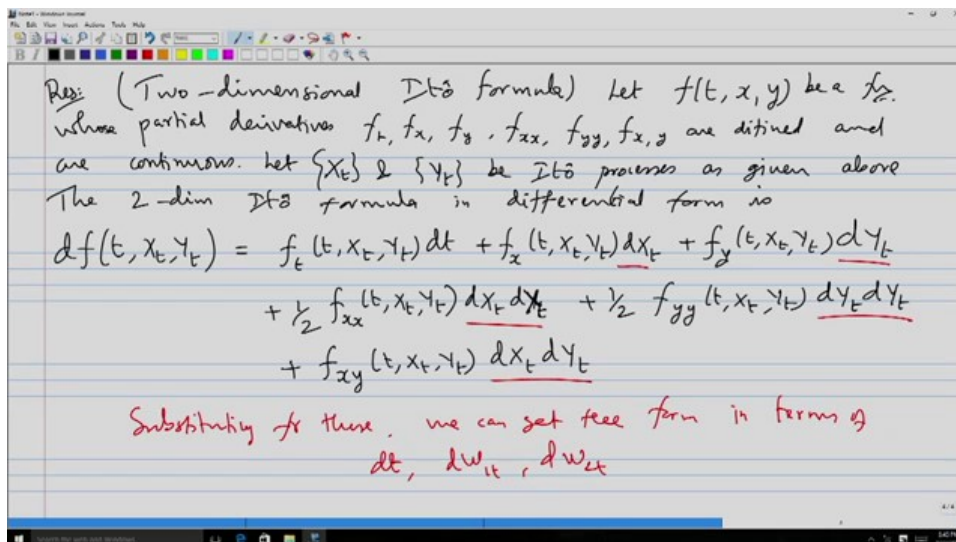 Res: (Two-dimensional Itô formula) Let f(t, x, y) be a fn.
whose partial derivatives f_t, f_x, f_y, f_xx, f_yy, f_x,y are ditined and
are continuous. Let {X_t} & {Y_t} be Itô processes as given above
The 2-dim Itô formula in differential form is
df(t, X_t, Y_t) = f_t (t, X_t, Y_t) dt + f_x (t, X_t, Y_t) dX_t + f_y (t, X_t, Y_t) dY_t
+ 1/2 f_xx (t, X_t, Y_t) dX_t dX_t + 1/2 f_yy (t, X_t, Y_t) dY_t dY_t
+ f_xy (t, X_t, Y_t) dX_t dY_t
Substituting for these, we can get the form in terms of
dt, dW_1t, dW_2t
4/4